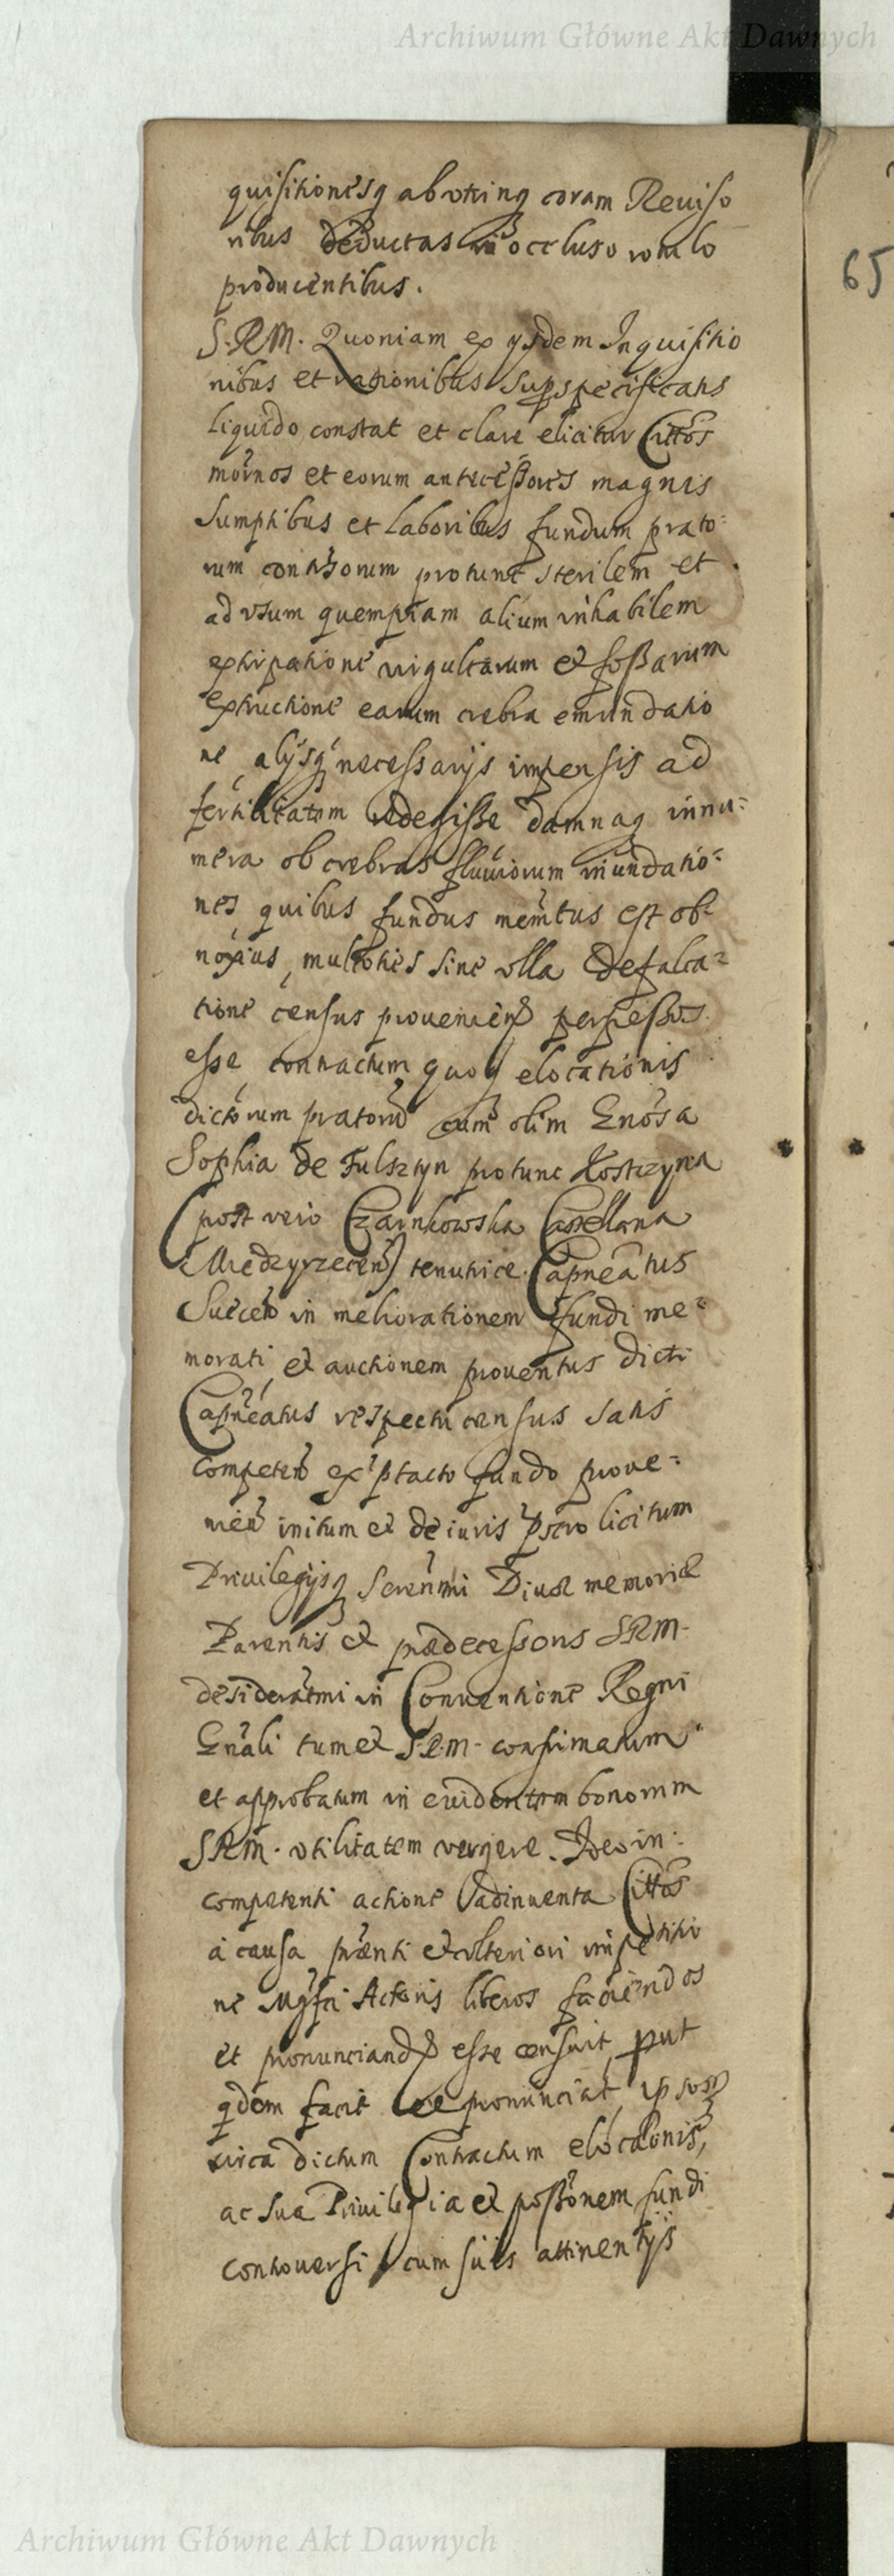 Archiwum Główne Akt Dawnych
quisitionesq ab utrinq coram Reuiso
ribus deductas in occluso rotulo
producentibus.
65
S.R.M. Quoniam ex ysdem Inquisitio
nibus et rationibus supspecificatis
liquido constat et clare elicitur Cittos
mornos et eorum antecessores magnis
Sumptibus et laboribus fundum prato=
rum protunc sterilem et
ad usum quempiam alium inhabilem
extirpatione virgultarum et fossarum
extructione earum crebra emundatio
ne, alijsq necessarijs impensis ad
fertilitatem redegisse damnaq innu=
mera ob crebras fluuiorum inundatio=
nes, quibus fundus memtus est ob=
noxius, multoties sine ulla defalca=
tione census prouenien perpessos
esse, contractum quoq elocationis
dictorum pratoru cum olim Gnosa
Sophia de Fulsztyn protunc Kostczyna
(post vero Czarnkowska Castellana
Miedzyrzecen) tenutrice Capneatus
in meliorationem fundi me=
morati, et auctionem prouentus dicti
Capneatus respectu census satis
competen ex ptacto fundo proue=
nien initum et de iuris pscro licitum
Priuilegijsq Serenmi Diuae memoriae
Parentis et praedecessoris SRM.
desideratmi in Conuentione Regni
Gnali tum et S.R.M. confirmatum
et approbatum in euidentem bonorum
SRM. utilitatem vergere. Ideo in:
competenti actione adinuenta Cittos
a causa praenti et ulteriori impetitio
ne Mgfci Actoris liberos faciendos
et pronunciand esse censuit, put
qdem facit ac pronunciat, ipsosq
circa dictum Contractum elocaonis,
ac sua Priuilegia et possonem fundi
controuersi cum suis attinentijs
Archiwum Główne Akt Dawnych